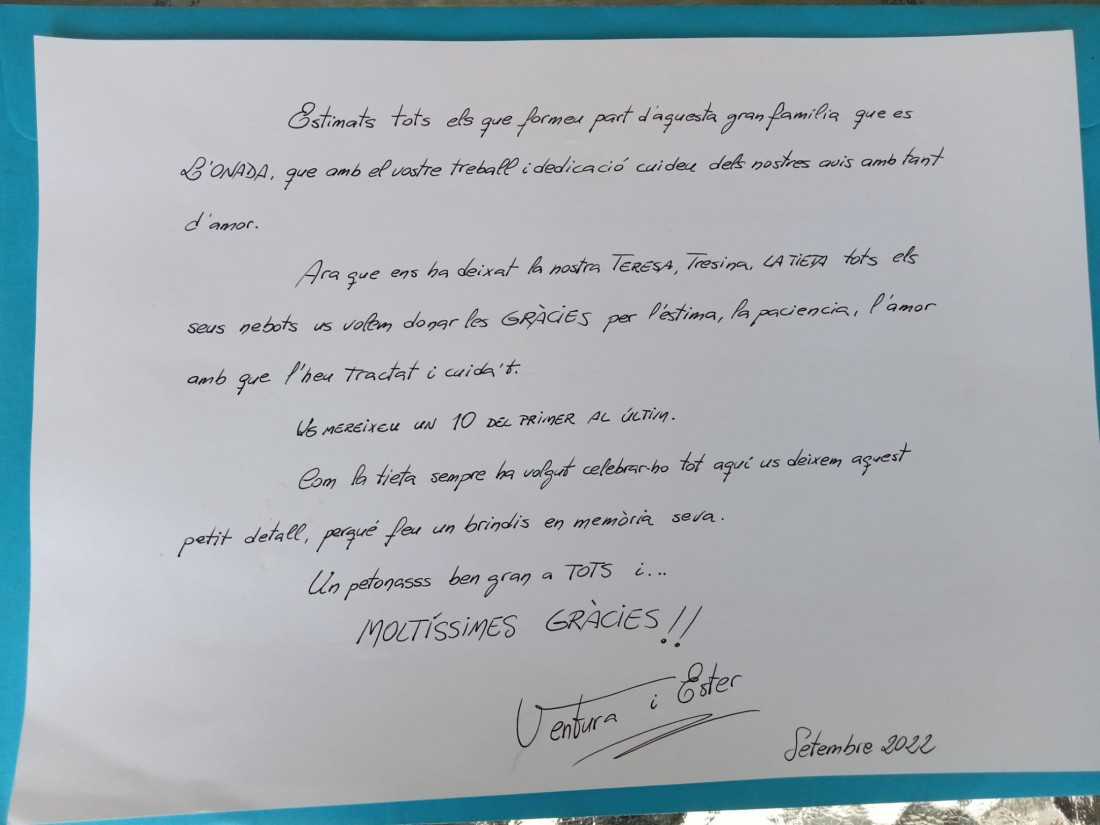 Estimats tots els que formeu part d'aquesta gran familia que es
L'ONADA, que amb el vostre treball i dedicació cuideu dels nostres avis amb tant
d'amor.
Ara que ens ha deixat la nostra TERESA, Tresina, LA TIETA tots els
seus nebots us volem donar les GRÀCIES per l'éstima, la paciencia, l'amor
amb que l'heu tractat i cuida't.
US MEREIXEU UN 10 DEL PRIMER AL ÚLTIM.
Com la tieta sempre ha volgut celebrar-ho tot aquí us deixem aquest
petit detall, perqué feu un brindis en memòria seva.
Un petonasss ben gran a TOTS i...
MOLTÍSSIMES GRÀCIES!!
Ventura i Ester
Setembre 2022